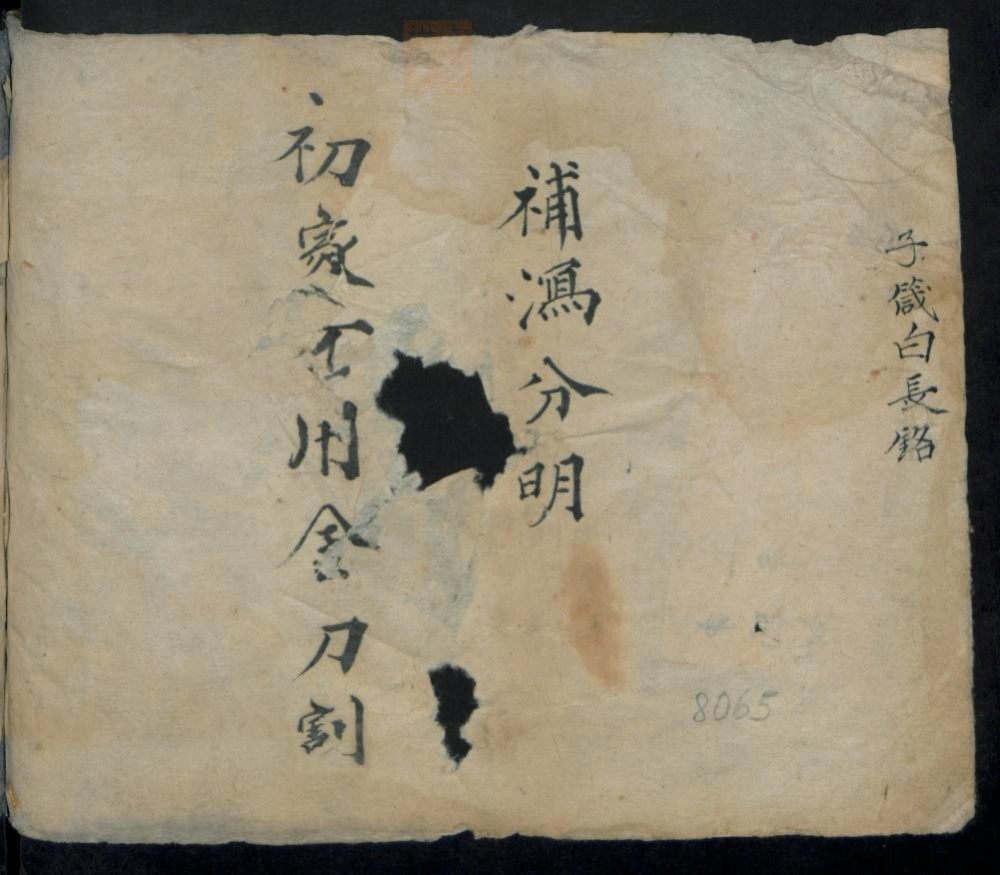 子箴白長鉻
補瀉分明
初用金刀割
8065